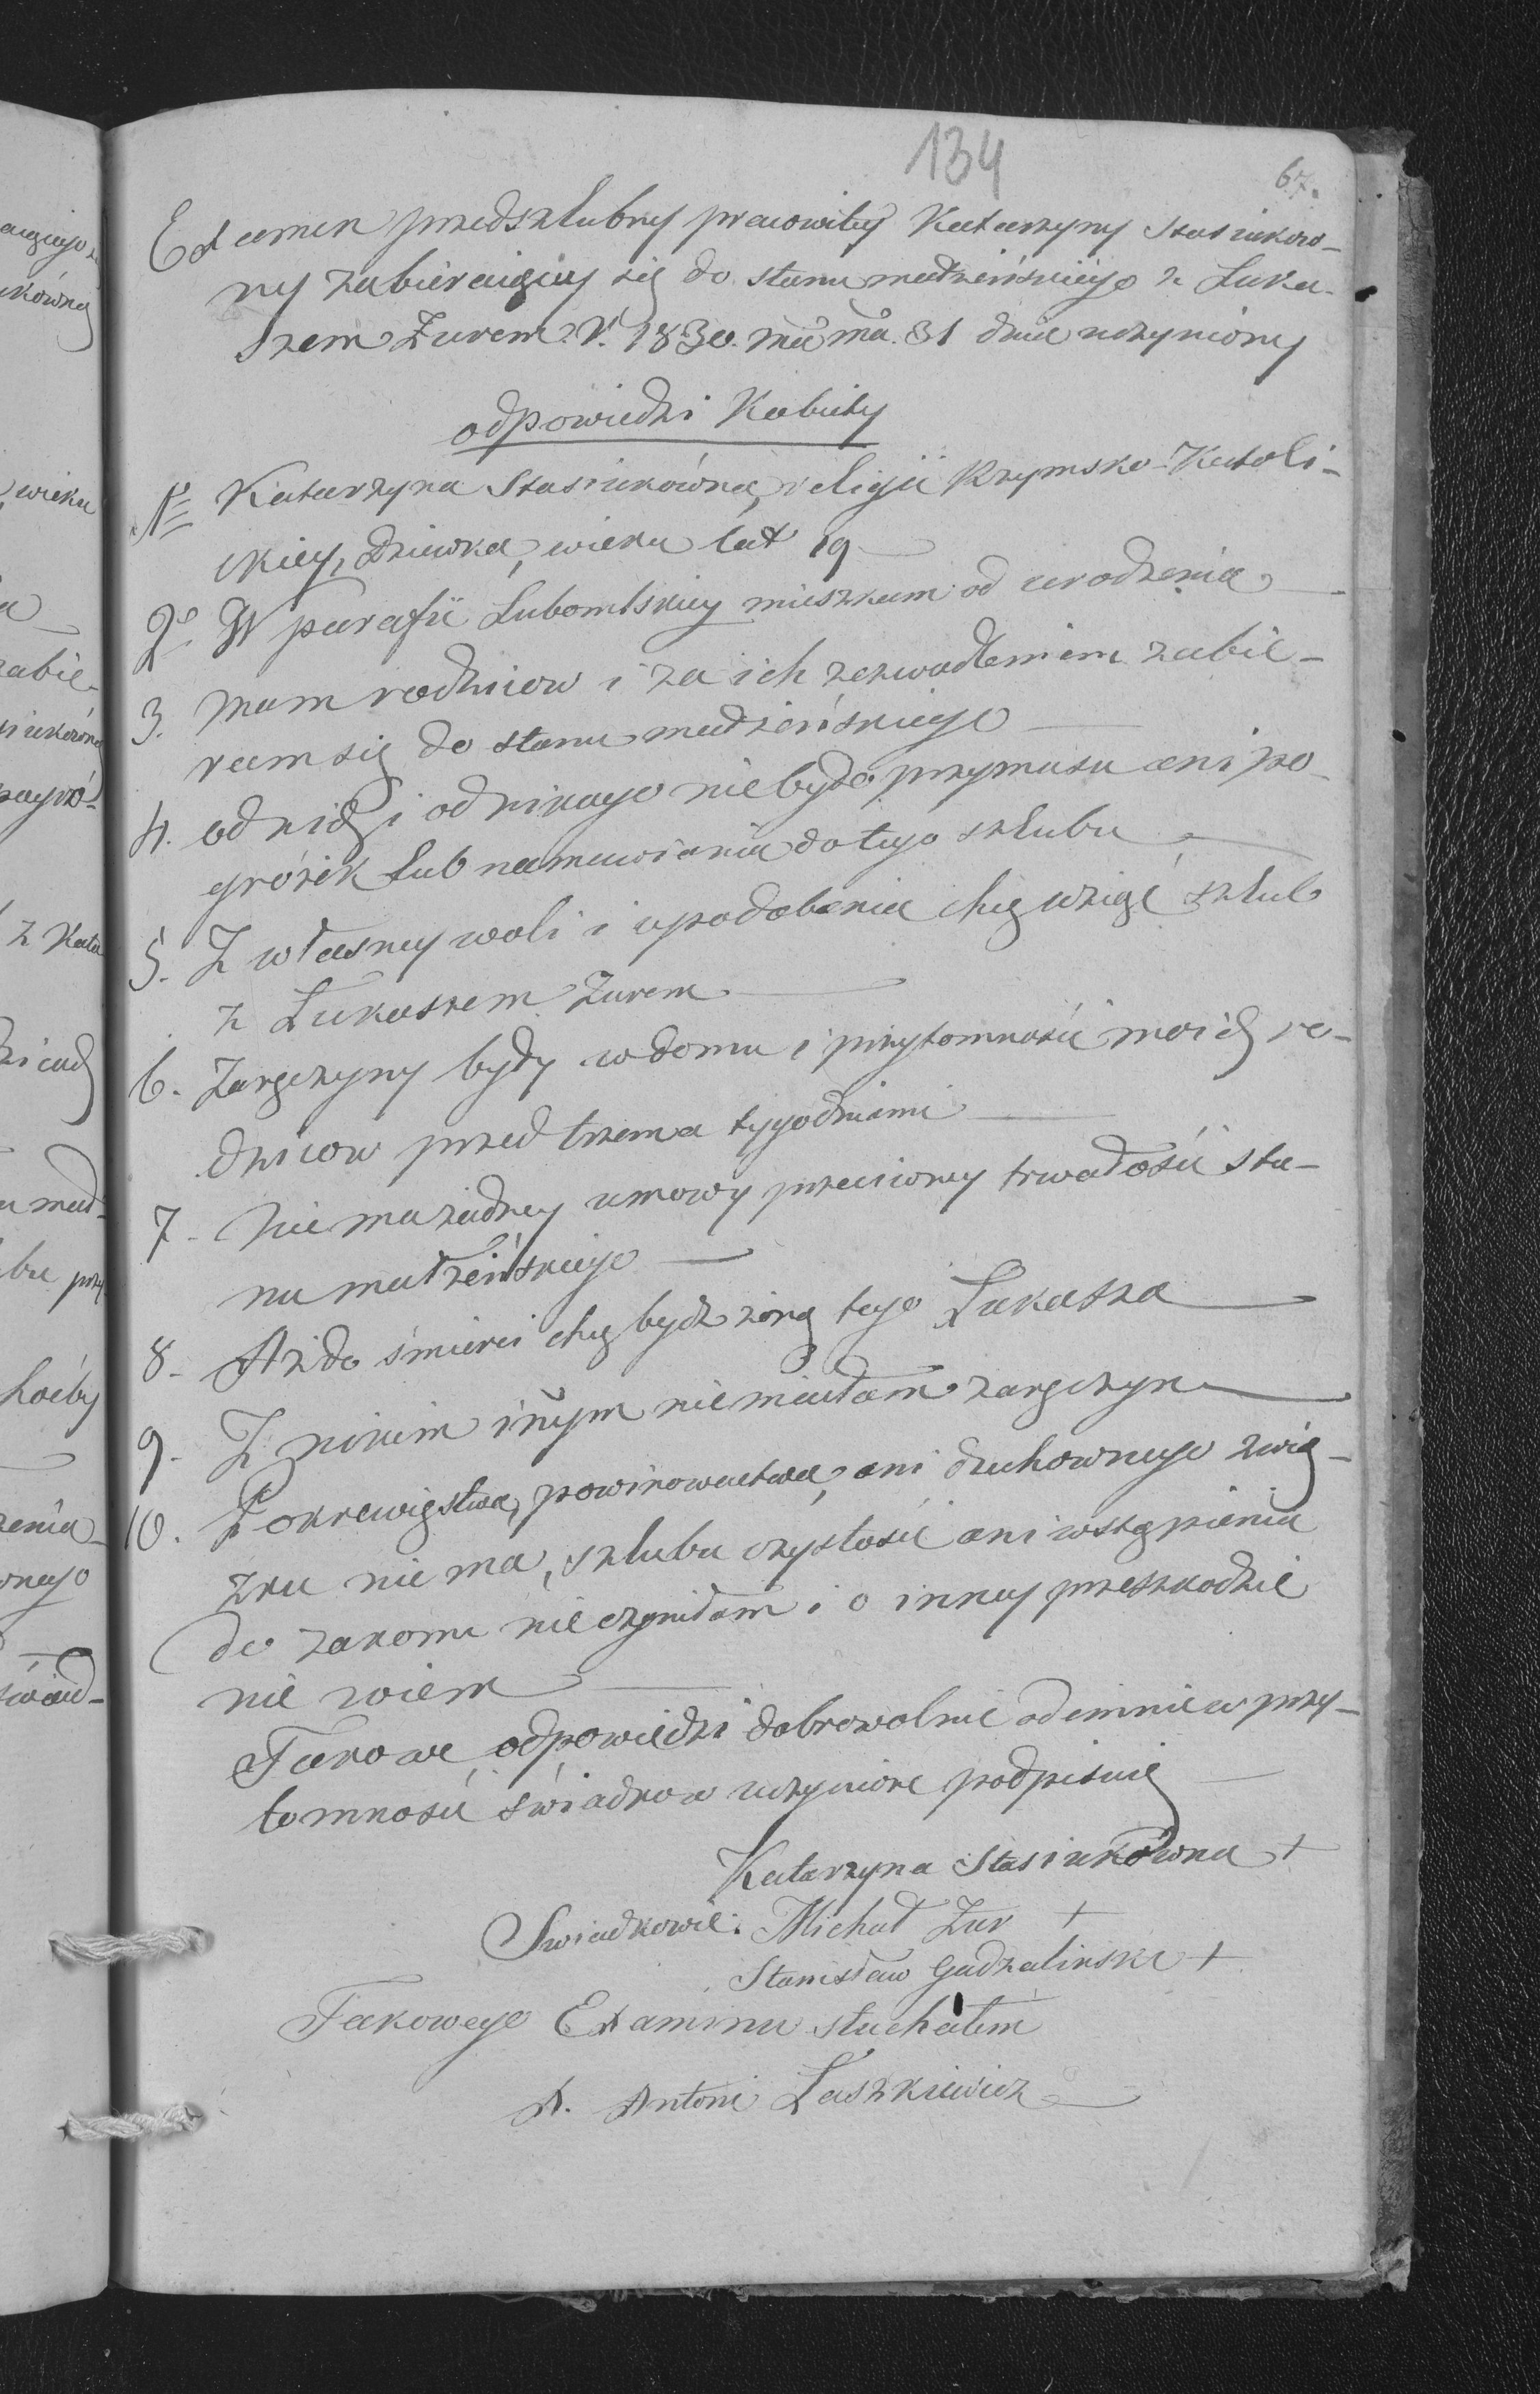 134
67.
Examen przedszlubny pracowitey Katarzyny Stasiukow-
ny zabieraiącey się do stanu małżeńskiego z Łuka-
szem Żurem R. 1830. 31 dnia uczyniony
odpowiedzi Kobiety
1º Katarzyna Stasiukówna, religii Rzymsko-Katoli-
ckiey, dziewka, wieku lat 19
2º W parafii Lubomlskiey mieszkam od urodzenia
3. mam rodzicow i za ich zezwoleniem zabie-
ram się do stanu małżeńskiego
4. od nich i od nikogo nie było przymusu ani po-
gróżek lub namawiania do tego szlubu
5. Z własney woli i upodobania chcę wziąć szlub
z Łukaszem Żurem
6. Zaręczyny były w domu i przytomności moich ro-
dzicow przed trzema tygodniami
7- Nie ma żadney umowy przeciwney trwałości sta-
nu małżeńskiego
8- Aż do śmierci chcę bydź żoną tego Łukasza
9- Z nikim iñym nie miałam zaręczyn
10. Pokrewięstwa, powinowactwa, ani duchownego zwią-
zku nie ma, szlubu czystości ani wstąpienia
do zakonu nie czyniłam i o inney przeszkodzie
nie wiem
Takowe odpowiedzi dobrowolnie odemnie w przy-
tomności świadkow uczynione podpisuię
Katarzyna Stasiukówna +
Swiadkowie: Michał Żur +
Stanisław Gadzalinski +
Takowego Examinu słuchałem
X. Antoni Laszkiewicz